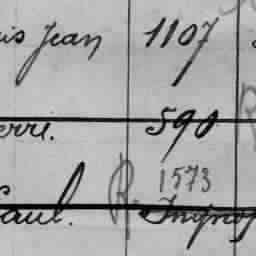 is Jean 1107
erri. 590
R. 1573
Paul.